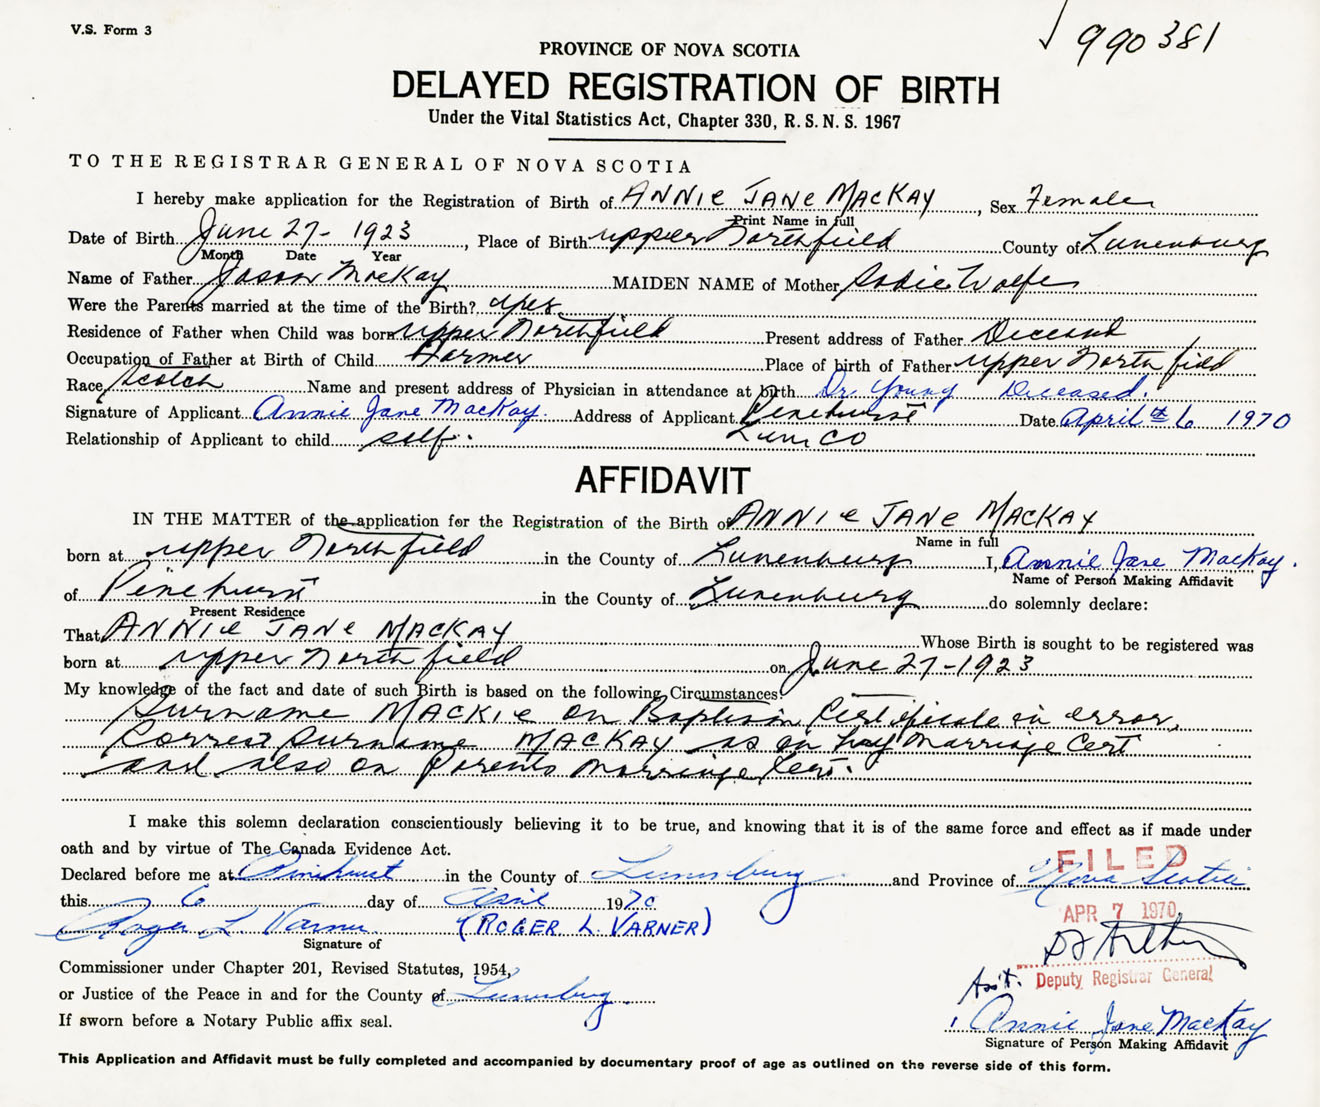 V.S. Form 3
990381
PROVINCE OF NOVA SCOTIA
DELAYED REGISTRATION OF BIRTH
Under the Vital Statistics Act, Chapter 330, R.S.N.S. 1967
TO THE REGISTRAR GENERAL OF NOVA SCOTIA
I hereby make application for the Registration of Birth of ANNIE JANE MACKAY, Sex Female
Print Name in full
Date of Birth June 27 - 1923, Place of Birth upper Northfield County of Lunenburg
Month Date Year
Name of Father Jason MacKay MAIDEN NAME of Mother Sadie Wolfe
Were the Parents married at the time of the Birth? yes
Residence of Father when Child was born upper Northfield Present address of Father Deceased
Occupation of Father at Birth of Child Farmer Place of birth of Father upper North field
Race Scotch Name and present address of Physician in attendance at birth Dr. Young Deceased.
Signature of Applicant Annie Jane MacKay. Address of Applicant Pinehurst Date April 6 1970
Lun. CO
Relationship of Applicant to child self.
AFFIDAVIT
IN THE MATTER of the application for the Registration of the Birth of ANNIE JANE MACKAY
Name in full
born at upper Northfield in the County of Lunenburg I, Annie Jane MacKay.
Name of Person Making Affidavit
of Pinehurst in the County of Lunenburg do solemnly declare:
Present Residence
That ANNIE JANE MACKAY Whose Birth is sought to be registered was
born at upper North field on June 27-1923
My knowledge of the fact and date of such Birth is based on the following Circumstances:
Surname MACKIE on Baptism Certificate in error,
Correct Surname MACKAY as on my Marriage Cert
and also on Parents Marriage Cert.
I make this solemn declaration conscientiously believing it to be true, and knowing that it is of the same force and effect as if made under
oath and by virtue of The Canada Evidence Act.
FILED
Declared before me at Pinehurst in the County of Lunenburg and Province of Nova Scotia
this 6 day of April 1970
APR 7 1970
Roger L Varner (ROGER L. VARNER)
Signature of
Commissioner under Chapter 201, Revised Statutes, 1954,
Ass't. Deputy Registrar General
or Justice of the Peace in and for the County of Lunenburg
If sworn before a Notary Public affix seal.
Annie Jane MacKay
Signature of Person Making Affidavit
This Application and Affidavit must be fully completed and accompanied by documentary proof of age as outlined on the reverse side of this form.